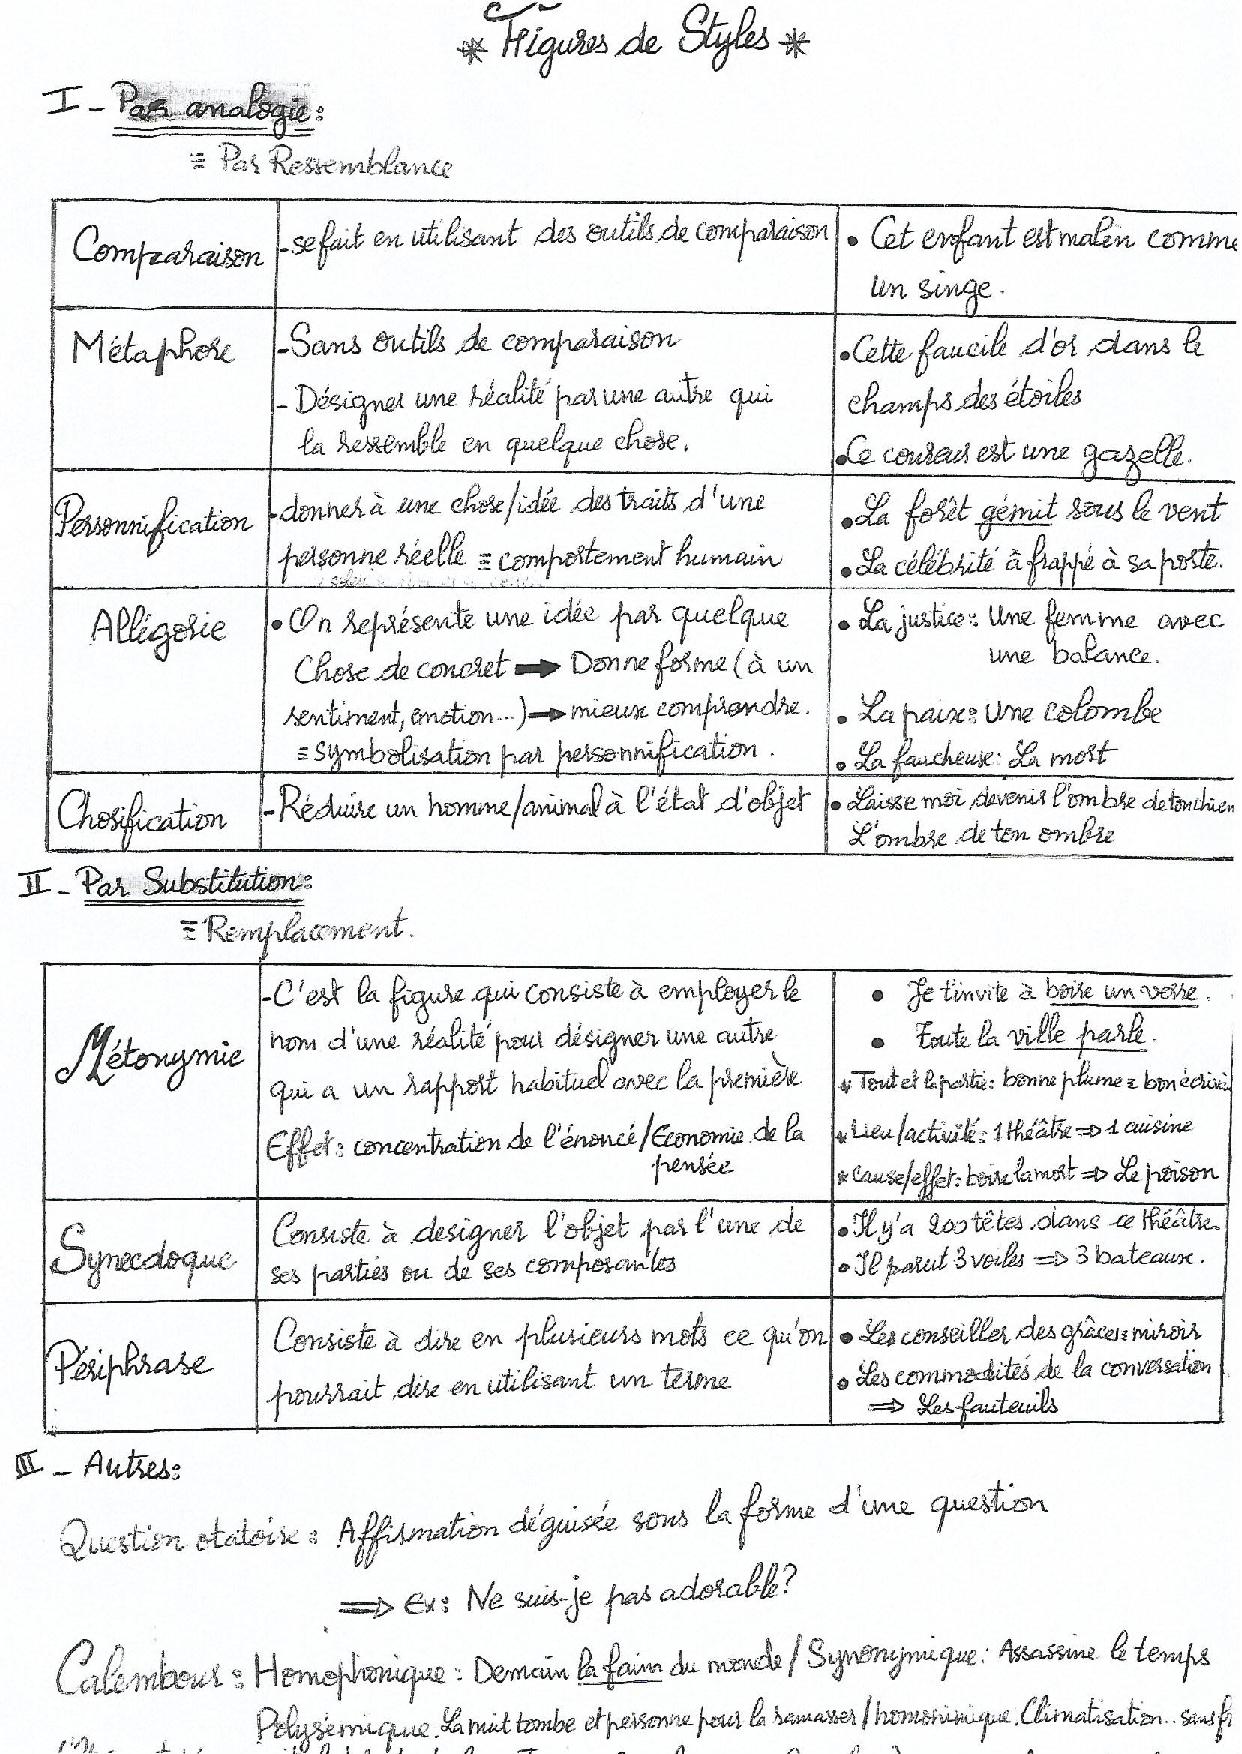 * Figures de Styles *
I - Par analogie :
≡ Par Ressemblance
Comparaison
- se fait en utilisant des outils de comparaison
• Cet enfant est malin comme
un singe.
Métaphore
- Sans outils de comparaison
- Désigner une réalité par une autre qui
la ressemble en quelque chose.
• Cette faucile d'or dans le
champs des étoiles
• Le coureur est une gazelle.
Personnification
- donner à une chose/idée des traits d'une
personne réelle ≡ comportement humain
• La forêt gémit sous le vent
• La célébrité à frappé à sa porte.
Allégorie
• On représente une idée par quelque
Chose de concret ➡ Donne forme (à un
sentiment, émotion...) ➡ mieux comprendre.
≡ symbolisation par personnification.
• La justice : Une femme avec
une balance.
• La paix : Une colombe
• La faucheuse : La mort
Chosification
- Réduire un homme/animal à l'état d'objet
• Laisse moi devenir l'ombre de ton chien
L'ombre de ton ombre
II - Par Substitution :
≡ Remplacement.
Métonymie
- C'est la figure qui consiste à employer le
nom d'une réalité pour désigner une autre
qui a un rapport habituel avec la première
Effet : concentration de l'énoncé / Economie de la
pensée
• Je t'invite à boire un verre.
• Toute la ville parle.
* Tout et la partie : bonne plume = bon écrivain
* Lieu/activité : 1 théâtre ⇒ 1 cuisine
* Cause/effet : boire la mort ⇒ Le poison
Synecdoque
Consiste à designer l'objet par l'une de
ses parties ou de ses composantes
• Il y'a 200 têtes dans ce théâtre
• Il parut 3 voiles ⇒ 3 bateaux.
Périphrase
Consiste à dire en plusieurs mots ce qu'on
pourrait dire en utilisant un terme
• Les conseiller des grâces = miroir
• Les commodités de la conversation
⇒ Les fauteuils
III - Autres :
Question otatoire : Affirmation déguisée sous la forme d'une question
⇒ Ex : Ne suis-je pas adorable ?
Calembour : Homophonique : Demain la faim du monde / Synonymique : Assassine le temps
Polysémique. La nuit tombe et personne pour la ramasser / homonimique. Climatisation.. sans